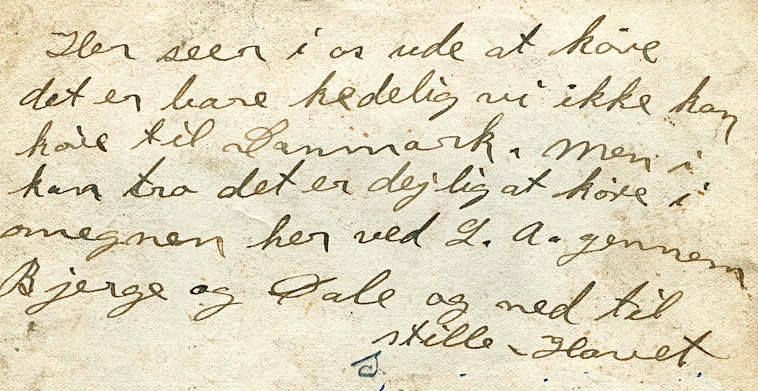 Her seer i os ude at köre
det er bare kedelig vi ikke kan
köre til Danmark. Men i
kan tro det er dejlig at köre i
omegnen her ved L. A. gennem
Bjerge og Dale og ned til
stille-Havet